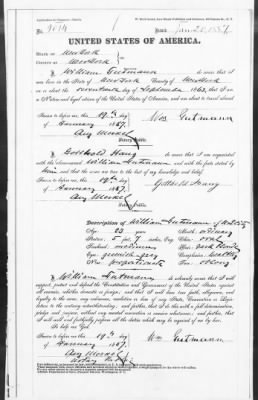 No. 9614
Issued Jan. 20 1887
UNITED STATES OF AMERICA.
STATE OF New York
COUNTY OF New York
I William Gutmann do swear that I was
born in the State of New York County of New York
on or about the seventeenth day of September 1863, that I am
a Native and loyal citizen of the United States of America, and am about to travel abroad
Sworn to before me, this 19th day
of January 1887.
Wm Gutmann
Notary Public.
I Gottbold Haug do swear that I am acquainted
with the above-named William Gutmann, and with the facts stated by
him and that the same are true to the best of my knowledge and belief.
Sworn to before me, this 19th day
of January 1887.
Notary Public.
Description of William Gutmann
Age: 23 years
Mouth: ordinary
Stature: 5 feet 7 inches, Eng.
Chin: oval
Forehead: medium
Hair: dark blond
Eyes: greenish grey
Complexion: healthy
Nose: proportionate
Face: oblong
I William Gutmann do solemnly swear that I will
support, protect and defend the Constitution and Government of the United States against
all enemies, whether domestic or foreign; and that I will bear true faith, allegiance, and
loyalty to the same, any ordinance, resolution or law of any State, Convention or Legislature
to the contrary notwithstanding; and further, that I do this with a full determination,
pledge and purpose, without any mental reservation or evasion whatsoever; and further, that
I will well and faithfully perform all the duties which may be required of me by law.
So help me God.
Sworn to before me, this 19th day
of January 1887.
Wm Gutmann
Notary Public